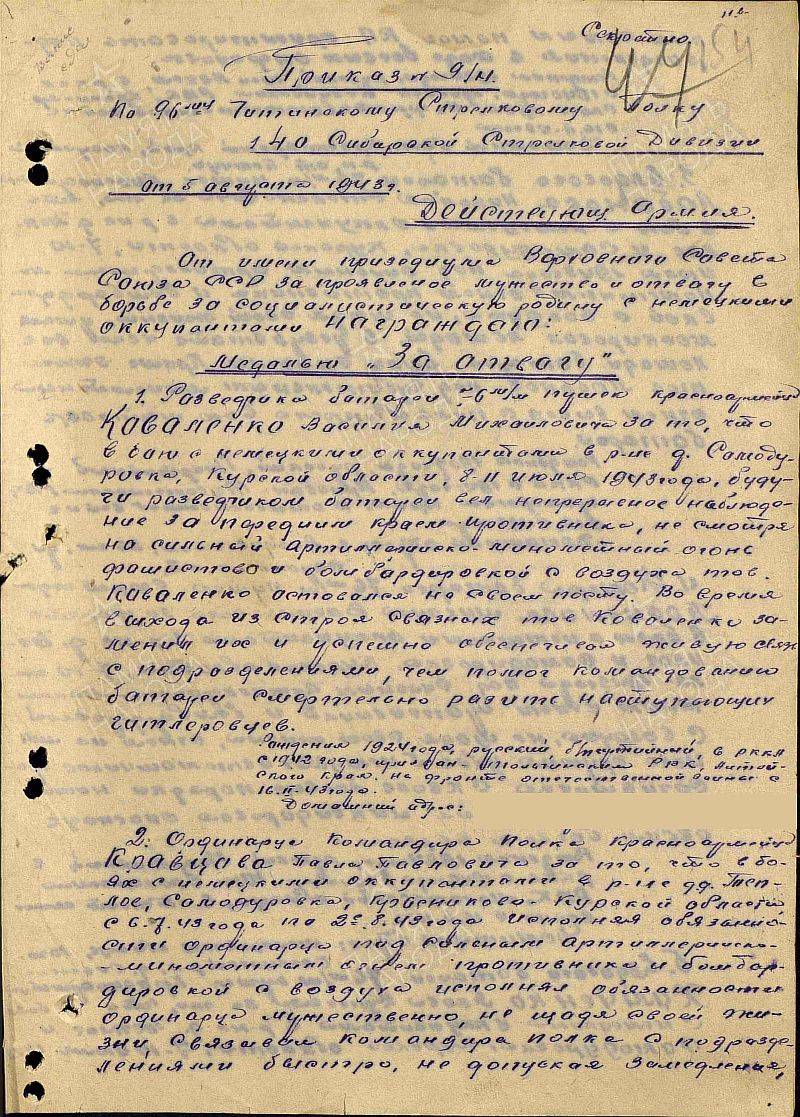 Секретно.
44 154
Приказ № 9/н.
По 96му Читинскому Стрелковому полку
140 Сибирской Стрелковой Дивизии
от 5 августа 1943 г.
Действующ армия.
От имени призедиума Верховного Совета
Союза ССР за проявленое мужество и отвагу в
борьбе за социалистическую родину с немецкими
оккупантами Награждаю:
Медалью „За отвагу"
1. Разведчика батареи 76 м/м пушек красноармейца
Коваленко Василия Михайловича за то, что
в бою с немецкими оккупантами в р-не д. Самоду-
ровка, Курской области, 8-11 июля 1943 года, буду-
чи разведчиком батареи вел непрерывное наблюде-
ние за передним краем противника, не смотря
на сильный артиллерийско-минометный огонь
фашистов и бомбардировкой с воздуха тов.
Коваленко оставался на своем посту. Во время
выхода из строя связных тов Коваленко за-
менил их и успешно обеспечил живую связь
с подразделениями, чем помог командованию
батареи смертельно разить наступающих
гитлеровцев.
Рождения 1924 года, русский, б/партийный, в РККА
с 1942 года, призван РВК, Алтай-
ского края. на фронте отечественной войны с
16.II-43 года.
Домашний адрес:
2. Ординарца командира полка красноармейца
Кравцова Павла Павловича за то, что в бо-
ях с немецкими оккупантами в р-не дд. Теп-
лое, Самодуровка, Красниково Курской области
с 6.7.43 года по 2.8.43 года исполняя обязанно-
сти ординарца под сильным артиллерийско-
-минометным огнем противника и бомбар-
дировкой с воздуха исполнял обязанности
ординарца мужественно, не щадя своей жи-
зни связывал командира полка с подразде-
лениями быстро, не допуская замедления,